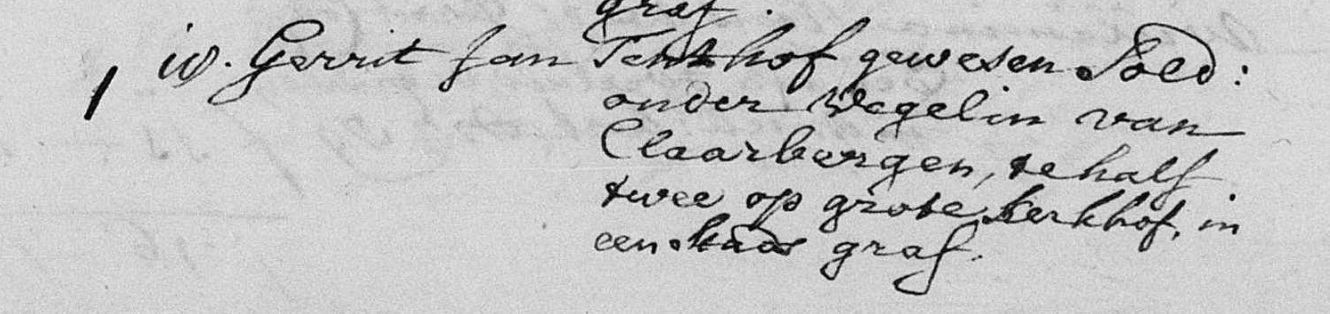 graf.
10. Gerrit Jan Tenkhof gewesen Sold:
onder Wegelin van
Claarbergen, te half
twee op grote kerkhof, in
een graf.